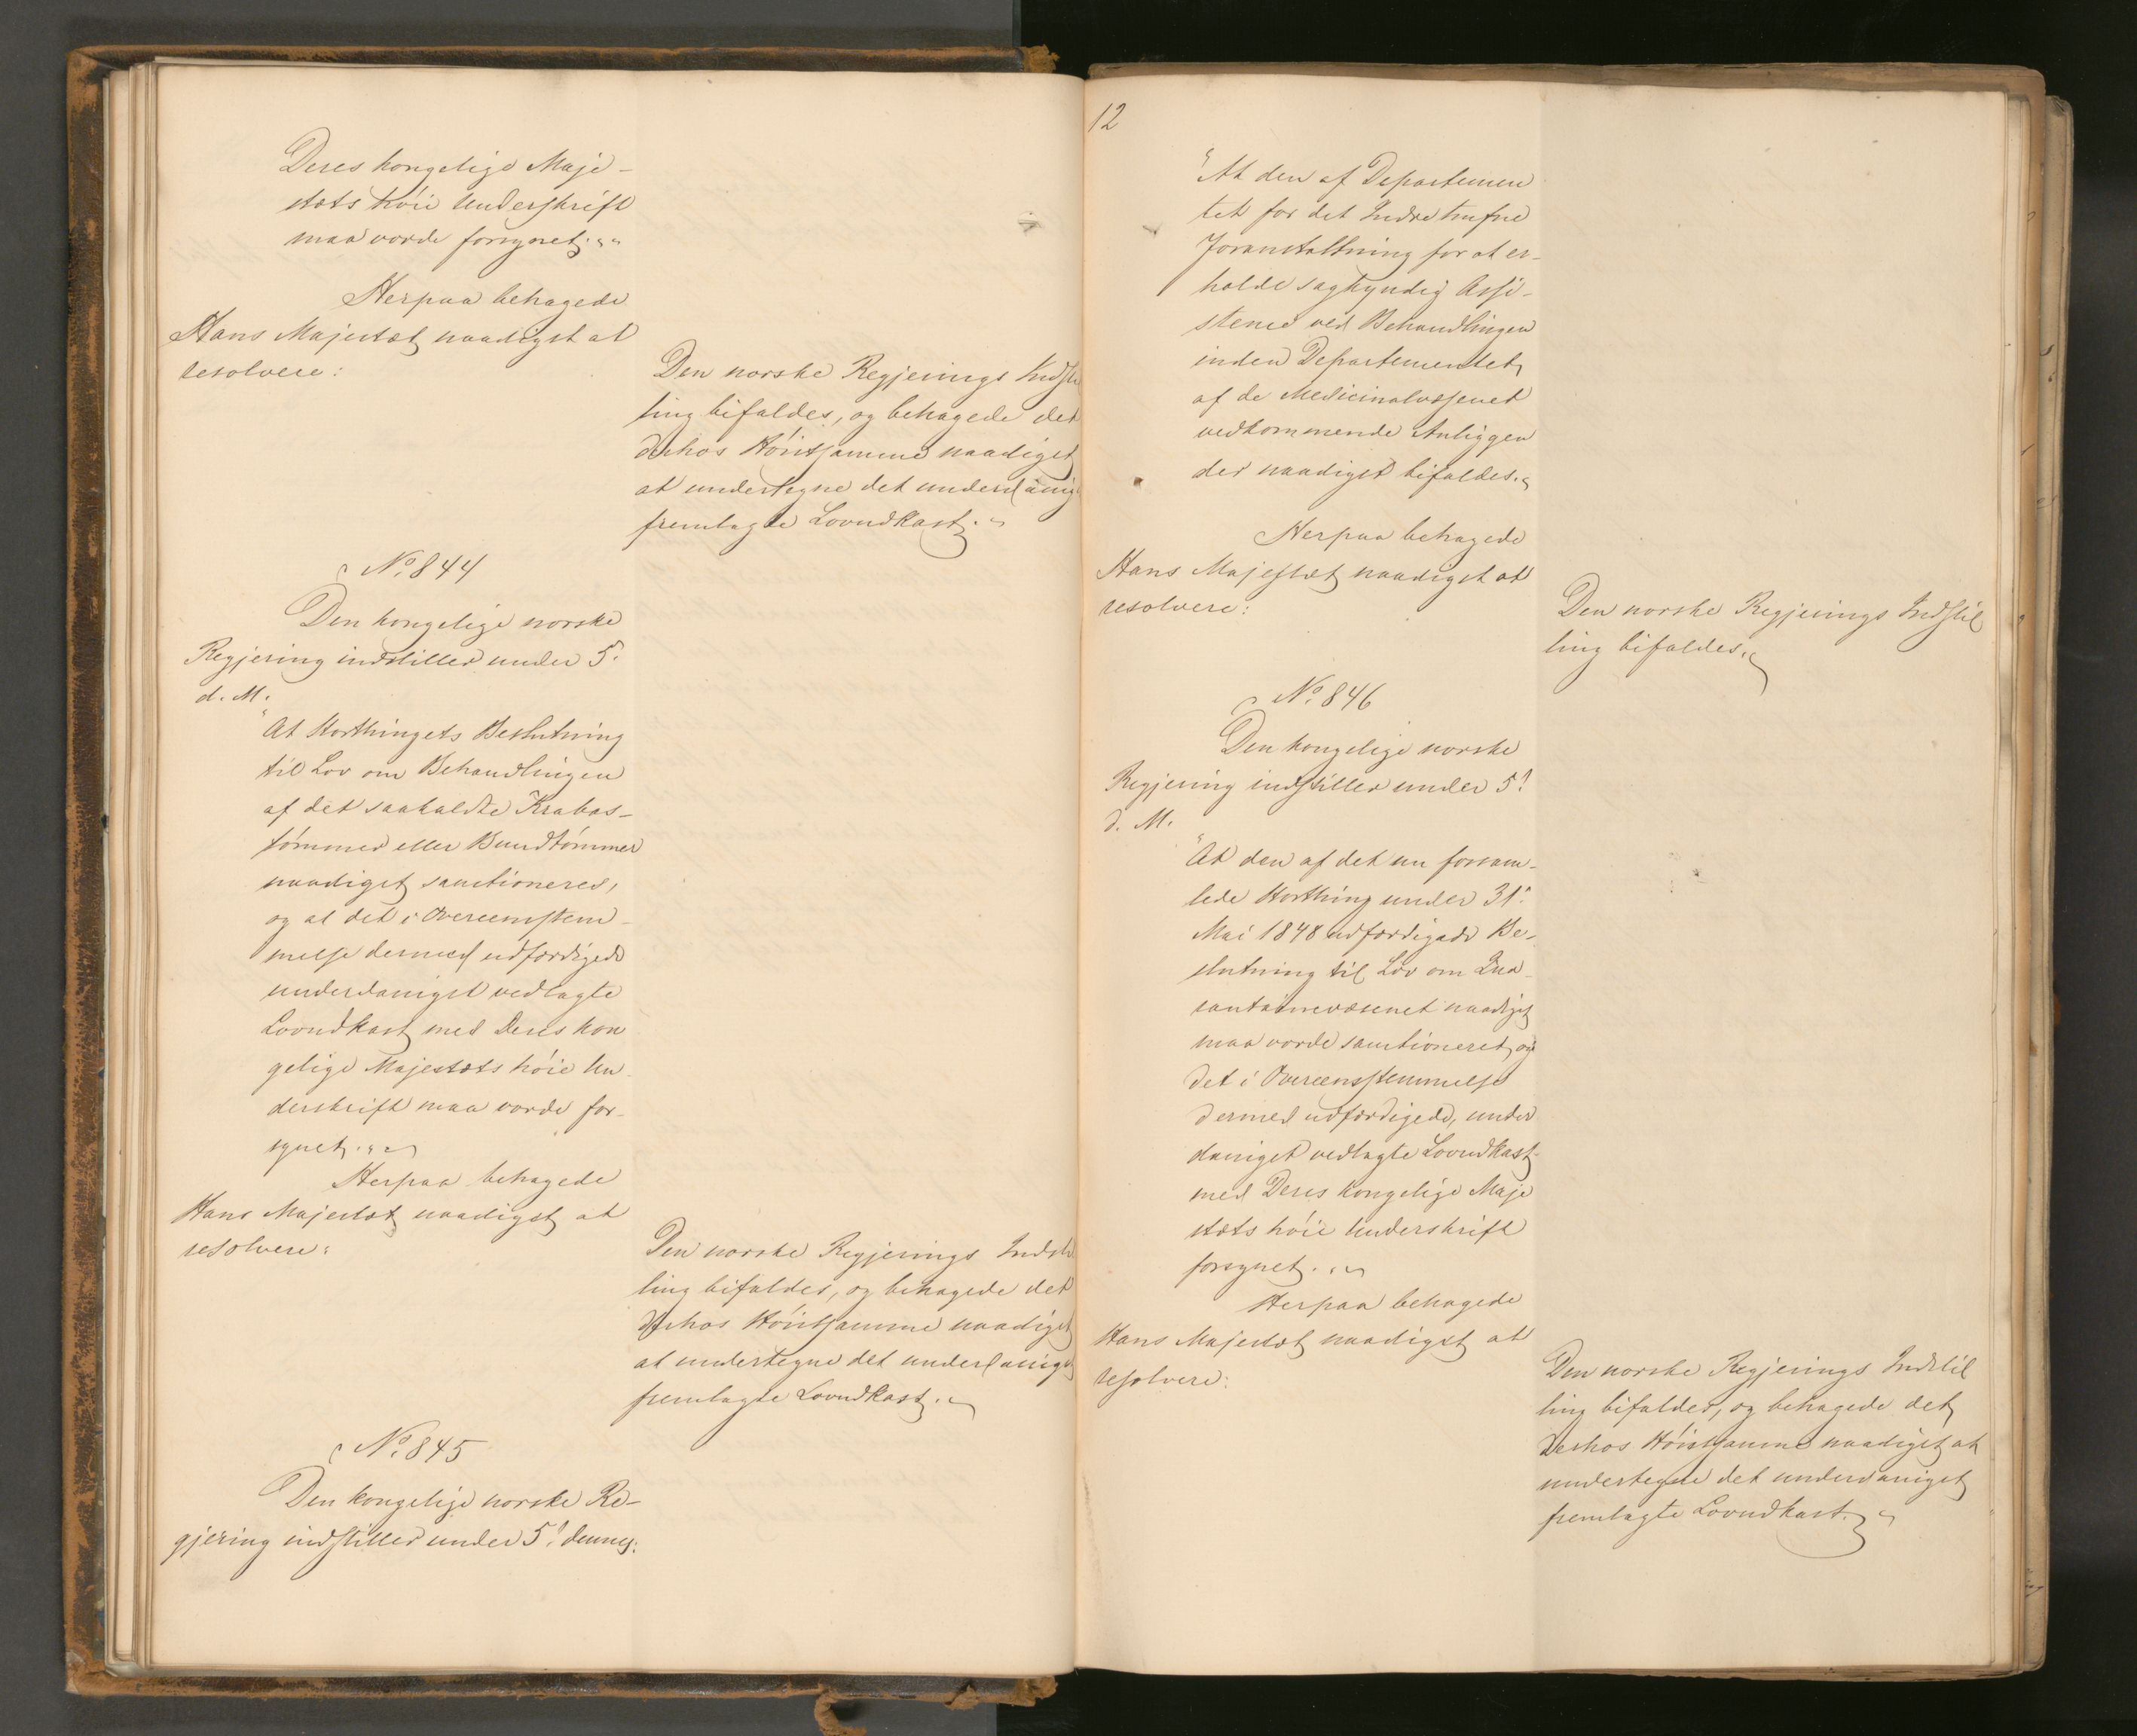 Deres kongelige Maje-
stæts høie Underskrift
maa vorde forsynet."
Herpaa behagede
Hans Majestæt naadigst at
resolvere:
Den norske Regjerings Indstil
ling bifaldes, og behagede det
derhos Høistsamme naadigst
at undertegne det underdanigst
fremlagte Lovudkast.
No. 844
Den kongelige norske
Regjering indstiller under 5.
d. M.
"At Storthingets Beslutning
til Lov om Behandlingen
af det saakaldte Krabas-
tømmer eller Bundtømmer
naadigst sanctioneres,
og at det i Overeenstem-
melse dermed udfærdigede
underdanigst vedlagte
Lovudkast med Deres kon
gelige Majestæts høie Un-
derskrift maa vorde for-
synet."
Herpaa behagede
Hans Majestæt naadigst at
resolvere:
Den norske Regjerings Indstil
ling bifaldes, og behagede det
derhos Høistsamme naadigst
at undertegne det underdanigst
fremlagte Lovudkast.
No. 845
Den kongelige norske Re-
gjering indstiller under 5! dennes:
12
"At den af Departemen
tet for det Indre trufne
Foranstaltning for at er-
holde sagkyndig Assi-
stence ved Behandlingen
inden Departementet
af de Medicinalvæsenet
vedkommende Anliggen
der naadigst bifaldes."
Herpaa behagede
Hans Majestæt naadigst at
resolvere:
Den norske Regjerings Indstil
ling bifaldes.
No. 846
Den kongelige norske
Regjering indstiller under 5!
d. M.
"At den af det nu forsam-
lede Storthing under 31.
Mai 1848 udfærdigede Be-
slutning til Lov om Qua-
rantainevæsenet naadigst
maa vorde sanctioneret, og
det i Overeensstemmelse
dermed udfærdigede, under
danigst vedlagte Lovudkast
med Deres kongelige Maje
stæts høie Underskrift
forsynet."
Herpaa behagede
Hans Majestæt naadigst at
resolvere:
Den norske Regjerings Indstil
ling bifaldes, og behagede det
derhos Høistsamme naadigst at
undertegne det underdanigst
fremlagte Lovudkast.